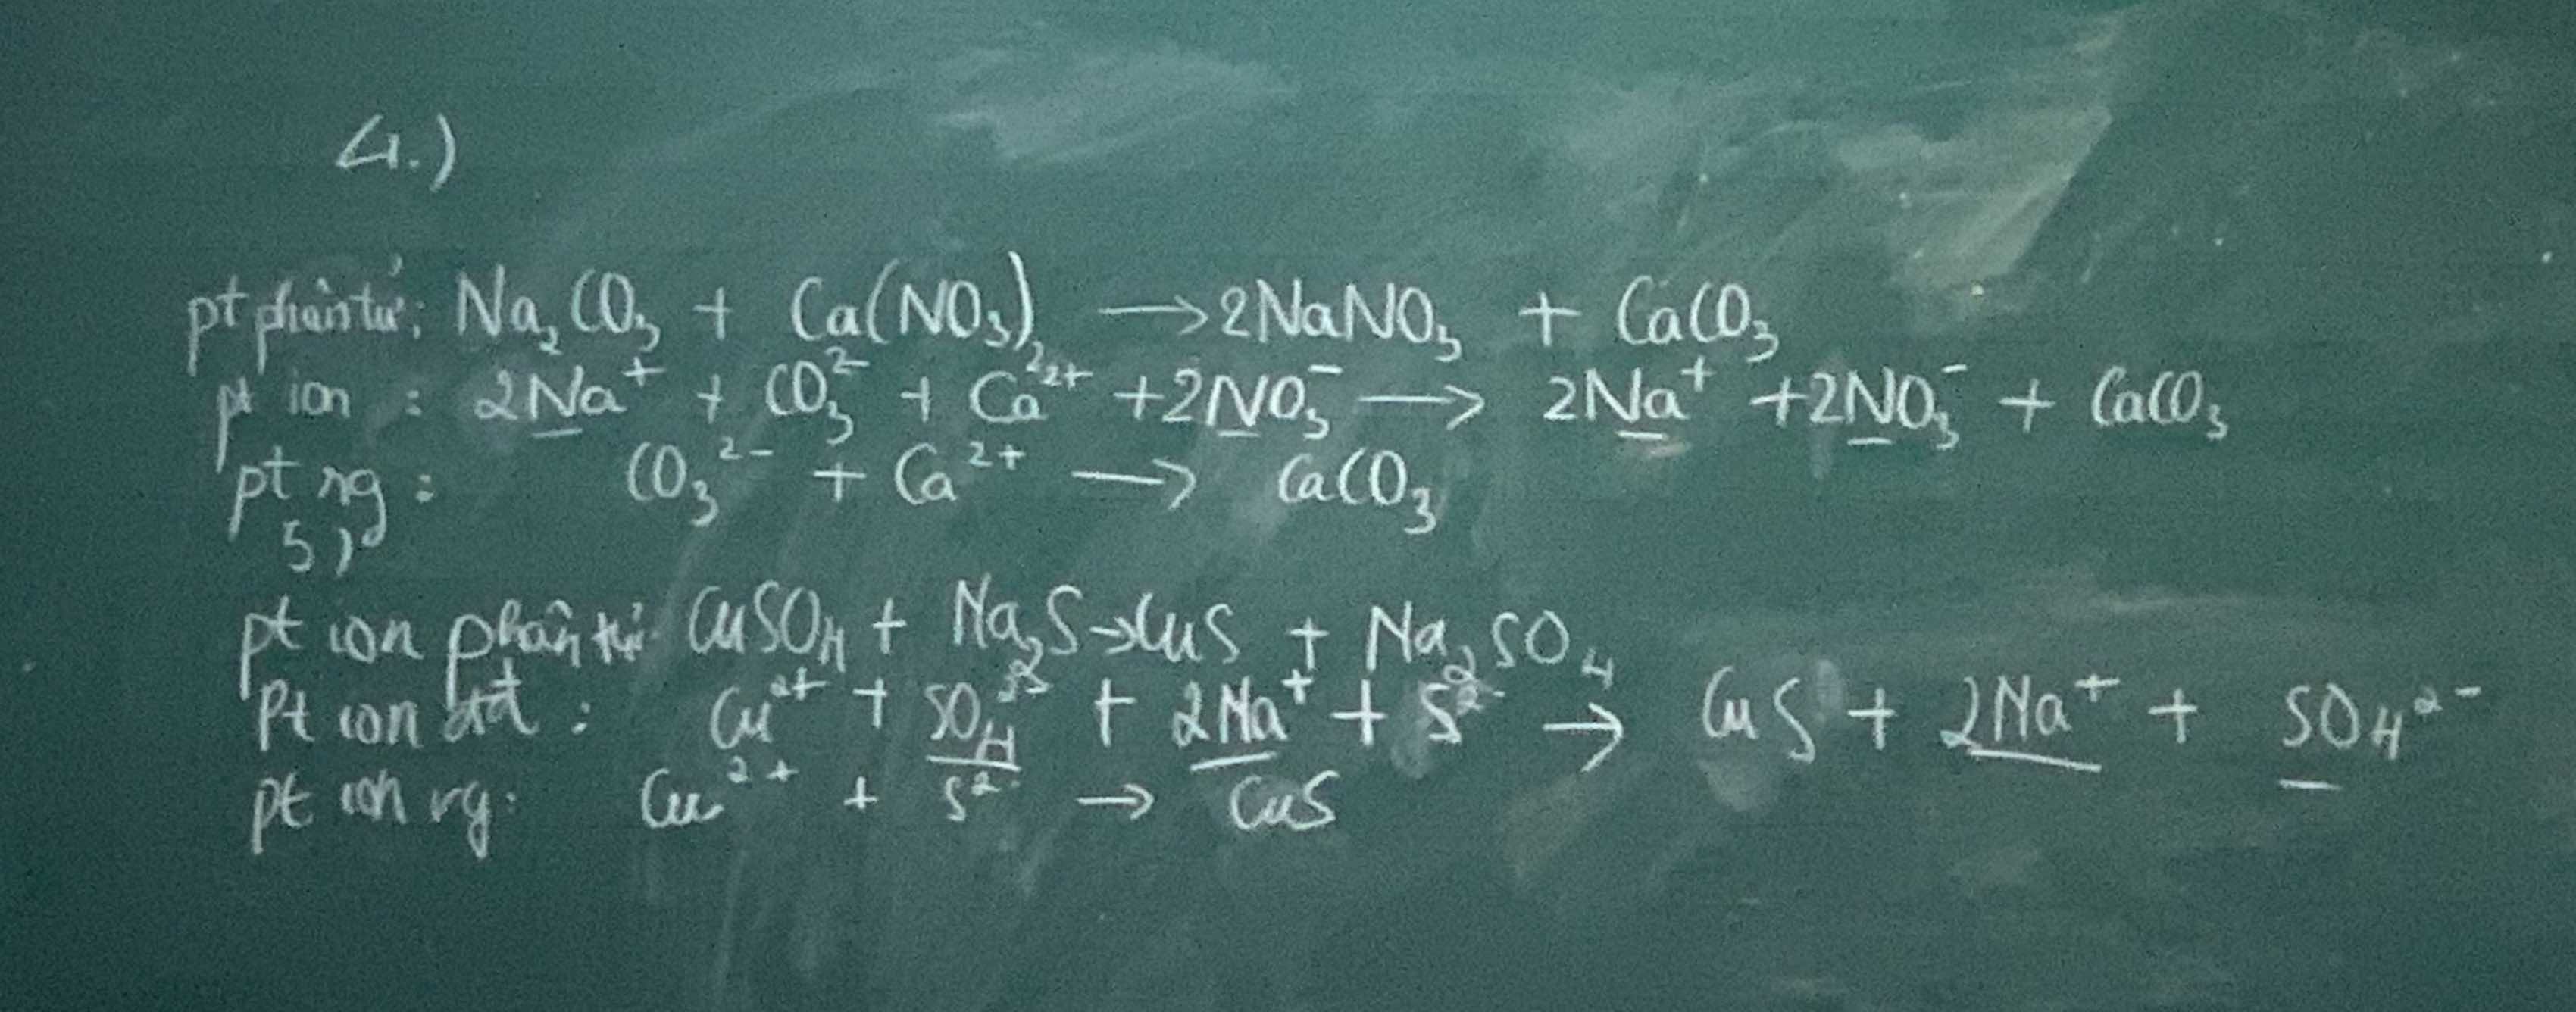 4.)
pt phân tử: Na₂CO₃ + Ca(NO₃)₂ → 2NaNO₃ + CaCO₃
pt ion : 2Na⁺ + CO₃²⁻ + Ca²⁺ + 2NO₃⁻ → 2Na⁺ + 2NO₃⁻ + CaCO₃
pt rg : CO₃²⁻ + Ca²⁺ → CaCO₃
5)
pt ion phân tử: CuSO₄ + Na₂S → CuS + Na₂SO₄
Pt ion đđ : Cu²⁺ + SO₄²⁻ + 2Na⁺ + S²⁻ → CuS + 2Na⁺ + SO₄²⁻
pt ion rg: Cu²⁺ + S²⁻ → CuS